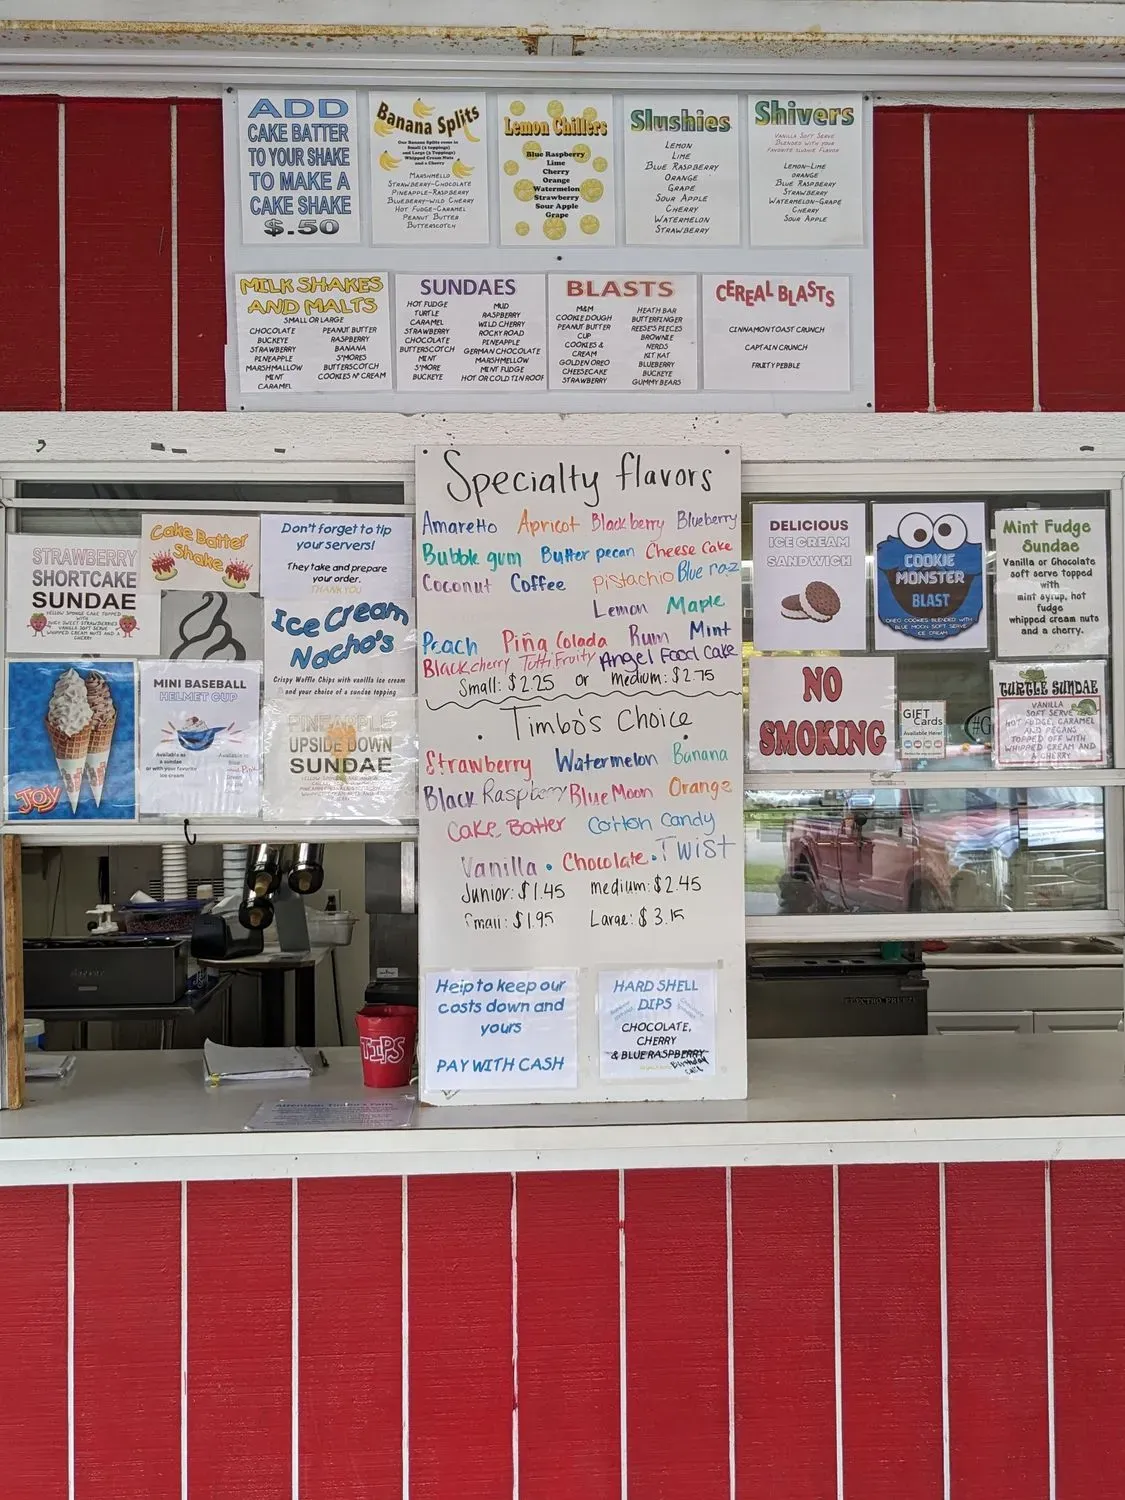 ADD
CAKE BATTER
TO YOUR SHAKE
TO MAKE A
CAKE SHAKE
$.50
Banana Splits
Our Banana Splits come in
Small (2 toppings)
and Large (3 Toppings)
Whipped Cream Nuts
and a Cherry
MARSHMELLO
STRAWBERRY-CHOCOLATE
PINEAPPLE-RASPBERRY
BLUEBERRY-WILD CHERRY
HOT FUDGE-CARAMEL
PEANUT BUTTER
BUTTERSCOTCH
Lemon Chillers
Blue Raspberry
Lime
Cherry
Orange
Watermelon
Strawberry
Sour Apple
Grape
Slushies
LEMON
LIME
BLUE RASPBERRY
ORANGE
GRAPE
SOUR APPLE
CHERRY
WATERMELON
STRAWBERRY
Shivers
VANILLA SOFT SERVE
BLENDED WITH YOUR
FAVORITE SLUSHIE FLAVOR
LEMON-LIME
ORANGE
BLUE RASPBERRY
STRAWBERRY
WATERMELON-GRAPE
CHERRY
SOUR APPLE
MILK SHAKES
AND MALTS
SMALL OR LARGE
CHOCOLATE
BUCKEYE
STRAWBERRY
PINEAPPLE
MARSHMALLOW
MINT
CARAMEL
PEANUT BUTTER
RASPBERRY
BANANA
S'MORES
BUTTERSCOTCH
COOKIES N' CREAM
SUNDAES
HOT FUDGE
TURTLE
CARAMEL
STRAWBERRY
CHOCOLATE
BUTTERSCOTCH
MINT
S'MORE
BUCKEYE
MUD
RASPBERRY
WILD CHERRY
ROCKY ROAD
PINEAPPLE
GERMAN CHOCOLATE
MARSHMELLOW
MINT FUDGE
HOT OR COLD TIN ROOF
BLASTS
M&M
COOKIE DOUGH
PEANUT BUTTER
CUP
COOKIES &
CREAM
GOLDEN OREO
CHEESECAKE
STRAWBERRY
HEATH BAR
BUTTERFINGER
REESE'S PIECES
BROWNIE
NERDS
KIT KAT
BLUEBERRY
BUCKEYE
GUMMY BEARS
CEREAL BLASTS
CINNAMON TOAST CRUNCH
CAPTAIN CRUNCH
FRUITY PEBBLE
STRAWBERRY
SHORTCAKE
SUNDAE
YELLOW SPONGE CAKE TOPPED
WITH
JUICY SWEET STRAWBERRIES
VANILLA SOFT SERVE
WHIPPED CREAM NUTS AND A
CHERRY
Cake Batter
Shake
Don't forget to tip
your servers!
They take and prepare
your order.
THANK YOU
Ice Cream
Nacho's
Crispy Waffle Chips with vanilla ice cream
and your choice of a sundae topping
JOY
MINI BASEBALL
HELMET CUP
Available as
a sundae
or with your favorite
ice cream
Available in
PINEAPPLE
UPSIDE DOWN
SUNDAE
Specialty flavors
Amaretto Apricot Blackberry Blueberry
Bubble gum Butter pecan Cheese Cake
Coconut Coffee pistachio Blue raz
Lemon Maple
Peach Piña Colada Rum Mint
Black cherry Tutti Fruity Angel Food Cake
Small: $2.25 or Medium: $2.75
Timbo's Choice
Strawberry Watermelon Banana
Black Raspberry Blue Moon Orange
Cake Batter Cotton Candy
Vanilla • Chocolate • Twist
Junior: $1.45 medium: $2.45
Small: $1.95 Large: $3.15
Help to keep our
costs down and
yours
PAY WITH CASH
HARD SHELL
DIPS
CHOCOLATE,
CHERRY
& BLUE RASPBERRY
Birthday
TIPS
DELICIOUS
ICE CREAM
SANDWICH
COOKIE
MONSTER
BLAST
OREO COOKIES BLENDED WITH
BLUE MOON SOFT SERVE
ICE CREAM
Mint Fudge
Sundae
Vanilla or Chocolate
soft serve topped
with
mint syrup, hot
fudge
whipped cream nuts
and a cherry.
NO
SMOKING
GIFT
Cards
Available Here!
TURTLE SUNDAE
VANILLA
SOFT SERVE
HOT FUDGE, CARAMEL
AND PECANS
TOPPED OFF WITH
WHIPPED CREAM AND
A CHERRY
ELECTRO FREEZE